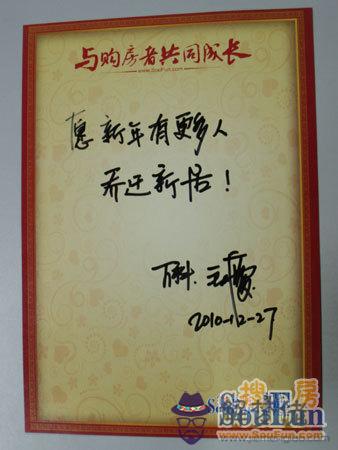 与购房者共同成长
www.SouFun.com
愿新年有更多人
乔迁新居！
万科.
2010-12-27
搜房
SouFun